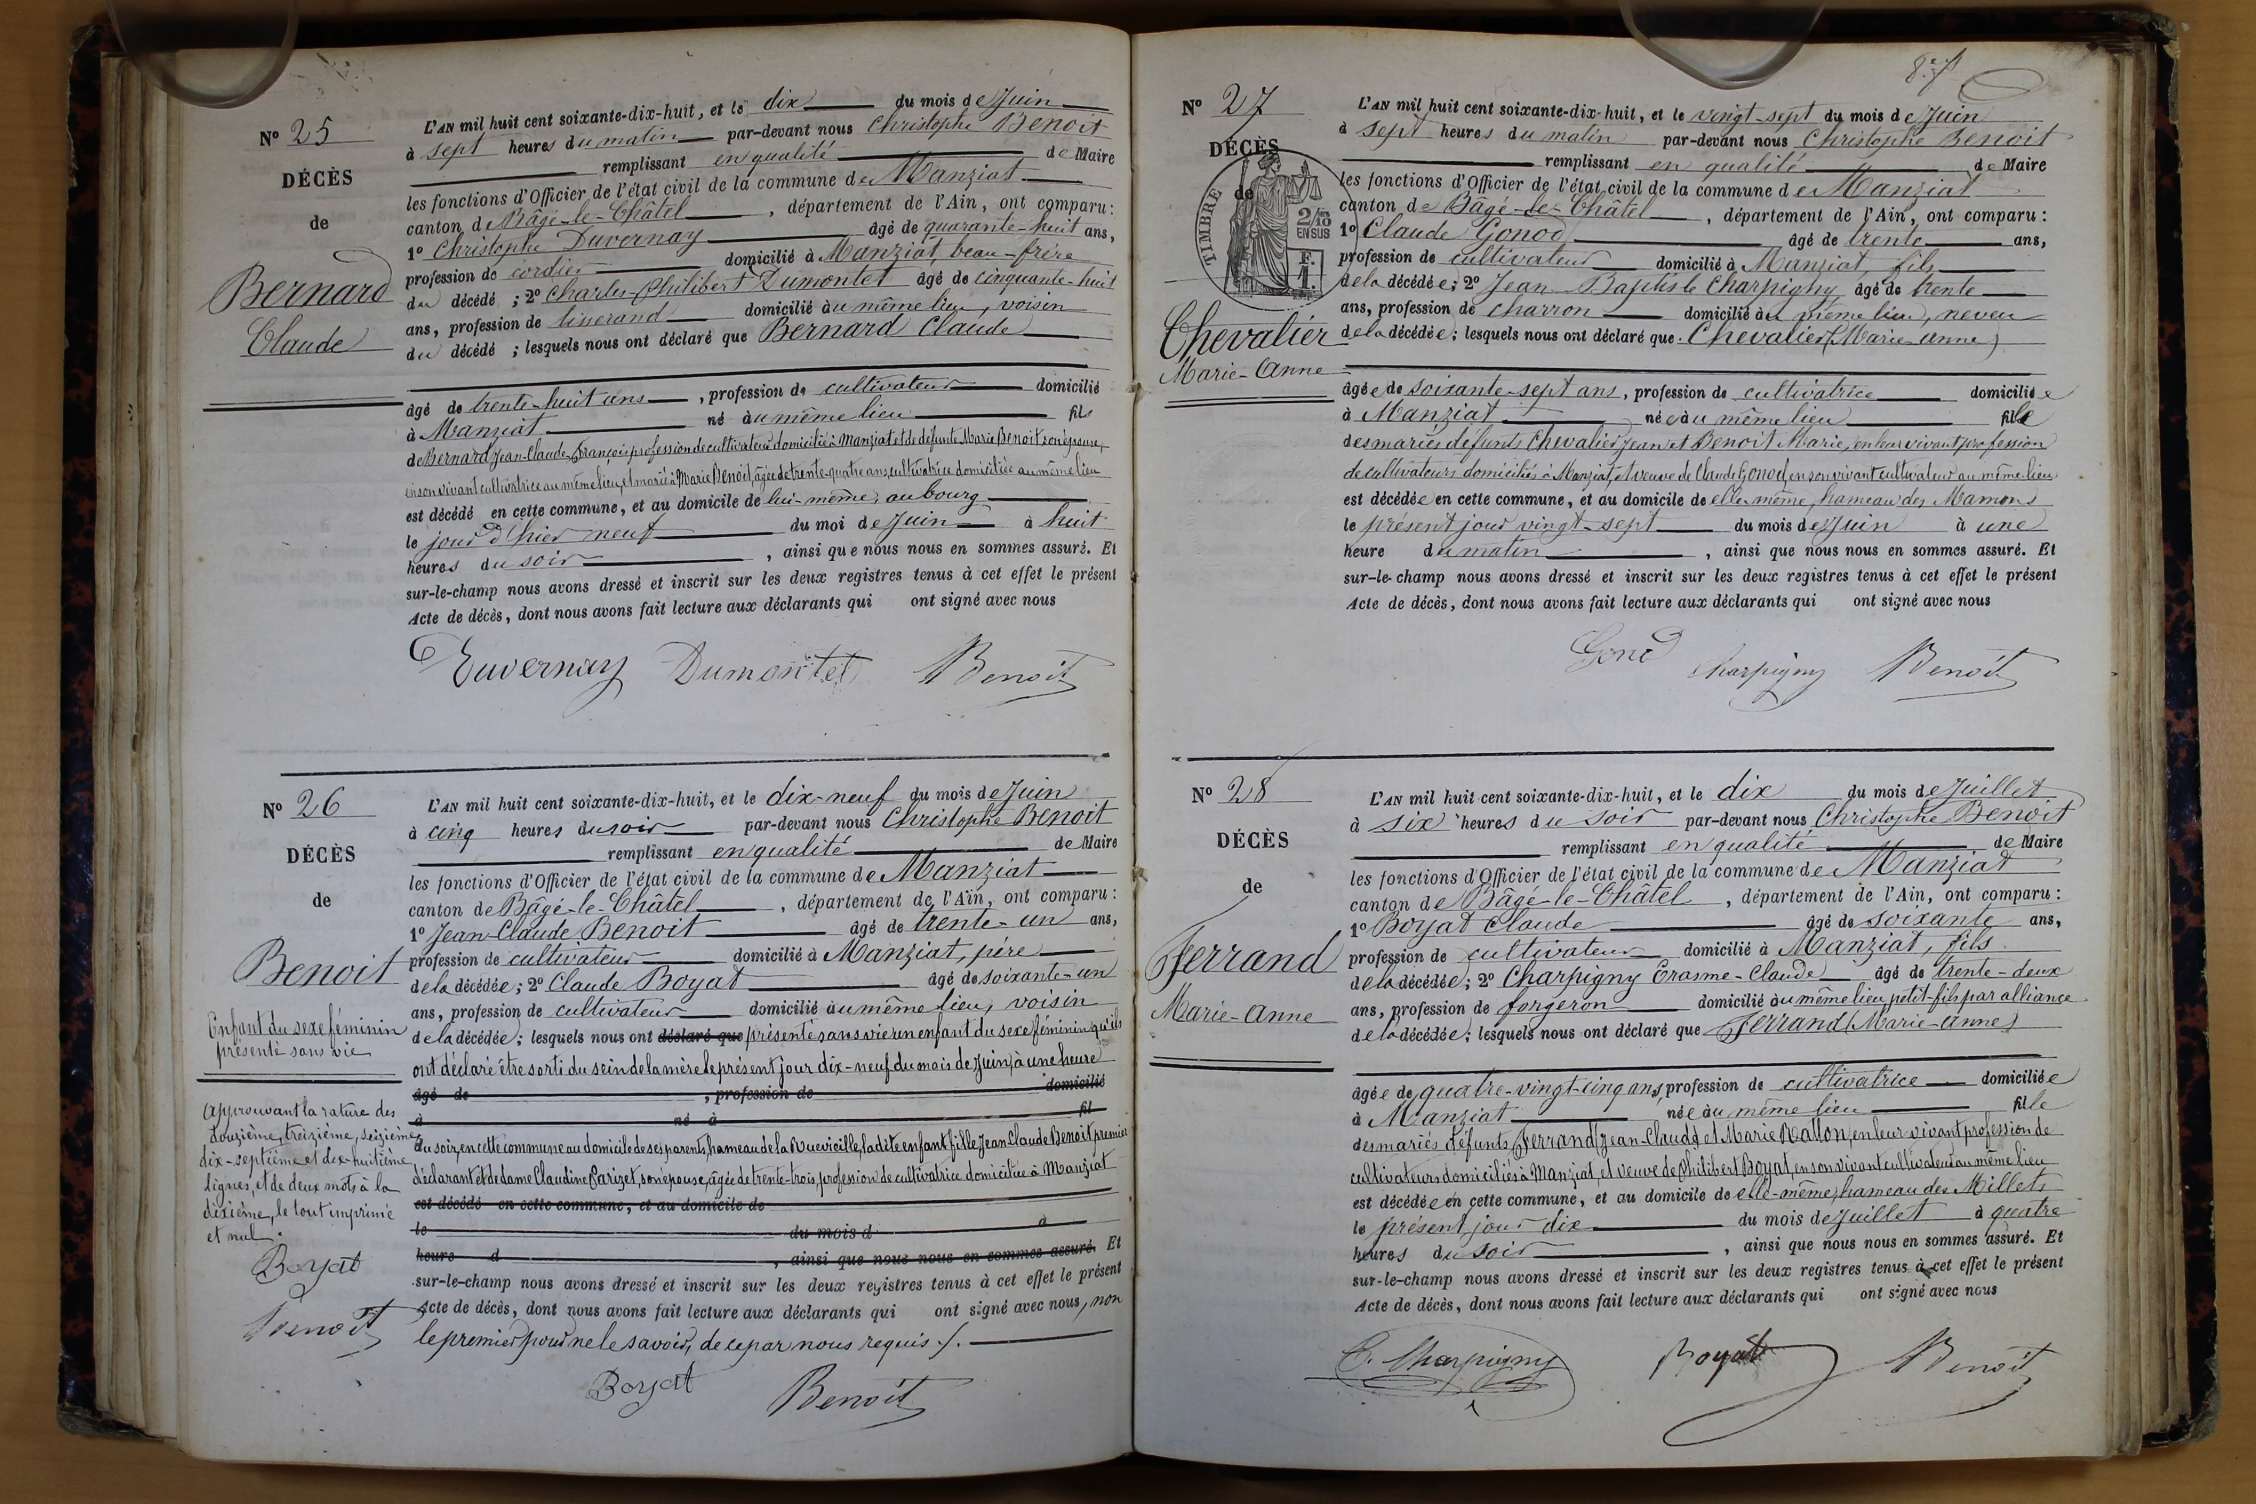 N° 25
DÉCÈS
de
Bernard
Claude
L'AN mil huit cent soixante-dix-huit, et le dix du mois de Juin
à sept heures du matin par-devant nous Christophe Benoit
remplissant en qualité de Maire
les fonctions d'Officier de l'état civil de la commune de Manziat
canton de Bâgé-le-Châtel, département de l'Ain, ont comparu:
1° Christophe Duvernay âgé de quarante-huit ans,
profession de cordier domicilié à Manziat, beau-frère
du décédé ; 2° Charles-Philibert Dumontet âgé de cinquante-huit
ans, profession de tisserand domicilié au même lieu, voisin
du décédé ; lesquels nous ont déclaré que Bernard Claude
âgé de trente-huit ans, profession de cultivateur domicilié
à Manziat né au même lieu fils
de Bernard Jean-Claude-François profession de cultivateur domicilié à Manziat et de défunte Marie Benoit son épouse,
en son vivant cultivatrice au même lieu, et marié à Marie Benoit, âgée de trente-quatre ans, cultivatrice domiciliée au même lieu
est décédé en cette commune, et au domicile de lui-même, au bourg
le jour d'hier neuf du moi de Juin à huit
heures du soir, ainsi que nous nous en sommes assuré. Et
sur-le-champ nous avons dressé et inscrit sur les deux registres tenus à cet effet le présent
Acte de décès, dont nous avons fait lecture aux déclarants qui ont signé avec nous
Duvernay Dumontet Benoit
N° 26
DÉCÈS
de
Benoit
Enfant du sexe féminin
présenté sans vie
Approuvant la rature des
douzième, treizième, seizième
dix-septième et dix-huitième
lignes, et de deux mots à la
dixième, le tout imprimé
et nul.
Boyat
Benoit
L'AN mil huit cent soixante-dix-huit, et le dix-neuf du mois de Juin
à cinq heures du soir par-devant nous Christophe Benoit
remplissant en qualité de Maire
les fonctions d'Officier de l'état civil de la commune de Manziat
canton de Bâgé-le-Châtel, département de l'Ain, ont comparu:
1° Jean Claude Benoit âgé de trente-un ans,
profession de cultivateur domicilié à Manziat, père
de la décédée; 2° Claude Boyat âgé de soixante-un
ans, profession de cultivateur domicilié au même lieu, voisin
de la décédée; lesquels nous ont déclaré que présenté sans vie un enfant du sexe féminin qu'ils
ont déclaré être sorti du sein de la mère le présent jour dix-neuf du mois de Juin, à une heure
âgé de, profession de domicilié
à né à fil
du soir, en cette commune au domicile de ses parents, hameau de la Ruevieille, ladite enfant fille Jean Claude Benoit, premier
déclarant et de dame Claudine Carizet, son épouse, âgée de trente-trois, profession de cultivatrice domiciliée à Manziat
est décédé en cette commune, et au domicile de
le du mois d à
heure d, ainsi que nous nous en sommes assuré. Et
sur-le-champ nous avons dressé et inscrit sur les deux registres tenus à cet effet le présent
Acte de décès, dont nous avons fait lecture aux déclarants qui ont signé avec nous, non
le premier pour ne le savoir, de ce par nous requis ./.
Boyat Benoit
N° 27
DÉCÈS
de
TIMBRE
2/10
EN SUS
F.
1.
Chevalier
Marie-Anne
L'AN mil huit cent soixante-dix-huit, et le vingt-sept du mois de Juin
à sept heures du matin par-devant nous Christophe Benoit
remplissant en qualité de Maire
les fonctions d'Officier de l'état civil de la commune de Manziat
canton de Bâgé-le-Châtel, département de l'Ain, ont comparu:
1° Claude Gonod âgé de trente ans,
profession de cultivateur domicilié à Manziat, fils
de la décédée; 2° Jean-Baptiste Charpigny âgé de trente
ans, profession de charron domicilié au même lieu, neveu
de la décédée; lesquels nous ont déclaré que Chevalier (Marie-anne)
âgée de soixante-sept ans, profession de cultivatrice domiciliée
à Manziat née au même lieu fille
des mariés défunts Chevalier Jean et Benoit Marie, en leur vivant profession
de cultivateurs domiciliés à Manziat, et veuve de Claude Gonod, en son vivant cultivateur au même lieu
est décédée en cette commune, et au domicile de elle-même, hameau des Mamons
le présent jour vingt-sept du mois de Juin à une
heure du matin, ainsi que nous nous en sommes assuré. Et
sur-le-champ nous avons dressé et inscrit sur les deux registres tenus à cet effet le présent
Acte de décès, dont nous avons fait lecture aux déclarants qui ont signé avec nous
Gonod Charpigny Benoit
N° 28
DÉCÈS
de
Ferrand
Marie-Anne
L'AN mil huit cent soixante-dix-huit, et le dix du mois de Juillet
à six heures du soir par-devant nous Christophe Benoit
remplissant en qualité de Maire
les fonctions d'Officier de l'état civil de la commune de Manziat
canton de Bâgé-le-Châtel, département de l'Ain, ont comparu:
1° Boyat Claude âgé de soixante ans,
profession de cultivateur domicilié à Manziat, fils
de la décédée; 2° Charpigny Erasme-Claude âgé de trente-deux
ans, profession de forgeron domicilié au même lieu, petit-fils par alliance
de la décédée; lesquels nous ont déclaré que Ferrand (Marie-anne)
âgée de quatre-vingt-cinq ans, profession de cultivatrice domiciliée
à Manziat née au même lieu fille
des mariés défunts Ferrand Jean-Claude et Marie Rallon, en leur vivant profession de
cultivateurs domiciliés à Manziat, et veuve de Philibert Boyat, en son vivant cultivateur au même lieu
est décédée en cette commune, et au domicile de elle-même, hameau des Millets
le présent jour dix du mois de Juillet à quatre
heures du soir, ainsi que nous nous en sommes assuré. Et
sur-le-champ nous avons dressé et inscrit sur les deux registres tenus à cet effet le présent
Acte de décès, dont nous avons fait lecture aux déclarants qui ont signé avec nous
C. Charpigny Boyat Benoit